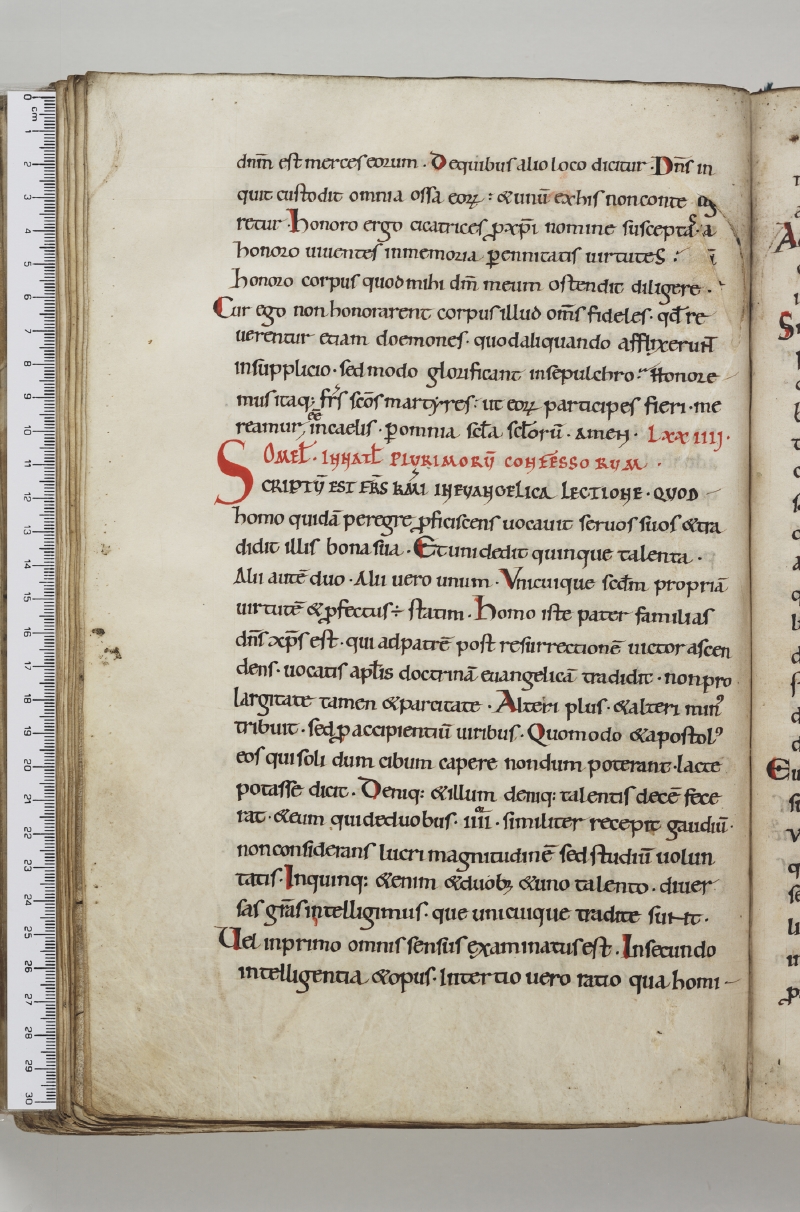 dnm̄ est merces eorum · De quibus alio loco dicitur · Dn̄s in
quit custodit omnia ossa eoꝝ : & unū ex his non conte
retur · Honoro ergo cicatrices ꝓ xp̄i nomine suscepta · a
honoro uiuentes in memoria ꝑennitatis uirtutes :
honoro corpus quod mihi dm̄ meum ostendit diligere ·
Cur ego non honorarent corpus illud om̄s fideles · qđ re
uerentur etiam doemones · quod aliquando afflixerunt
in supplicio · sed modo glorificant in sepulchro : Honore
mus itaq; fr̄s sc̄os martyres : ut eoꝝ participes fieri · me
reamur in caelis · ꝑ omnia sc̄la sc̄lorū · amen · LXXIIII ·
OMEL̄ · IN NAT̄L PLURIMORŪ CONFESSORUM ·
SCRIPTŪ EST FR̄S KM̄I IN EVANGELICA LECTIONE · QUOD
homo quidā peregre ꝓficiscens uocauit seruos suos & tra
didit illis bona sua · Et uni dedit quinque talenta ·
Alii autē duo · Alii uero unum · Vnicuique scd̄m propriā
uirtutē & ꝓfectus ÷ statim · Homo iste pater familias
dn̄s xp̄s est · qui ad patrē post resurrectionē uictor ascen
dens · uocatis ap̄lis doctrinā euangelicā tradidit · non pro
largitate tamen & parcitate · Alteri plus · & alteri min᾽
tribuit · sed ꝓ accipientiū uiribus · Quomodo & apostol᾽
eos qui soli dum cibum capere nondum poterant · lacte
potasse dicit · Deniq; & illum deniq; talentis decē fece
rat · & eum qui de duobus · iiii · similiter recepit gaudiū ·
non considerans lucri magnitudinē sed studiū uolun
tatis · In quinq; & enim & duobꝫ & uno talento · diuer
sas gr̄as intelligimus · que unicuique tradite sunt ·
Uel in primo omnis sensus examinatus est · In secundo
intelligentia & opus · In tertio uero ratio qua homi